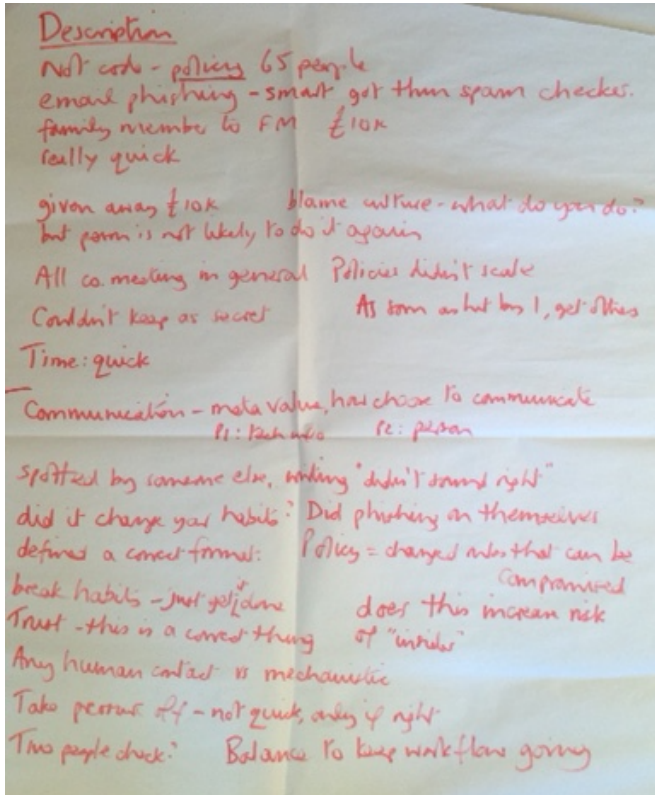 Description
Not code - policy 65 people
email phishing - smart got thru spam checker.
family member to FM £10K
really quick
given away £10K blame culture - what do you do?
but person is not likely to do it again
All co. meeting in general Policies didn't scale
Couldn't keep as secret As soon as hit by 1, get others
Time: quick
Communication - meta value, how choose to communicate
P1: tech info P2: person
spotted by someone else, writing "didn't sound right"
did it change your habits? Did phishing on themselves
defined a correct format: Policy = changed rules that can be
compromised
break habits - just get it done does this increase risk
Trust - this is a correct thing of "insider"
Any human contact is mechanistic
Take pressure off - not quick, only if right
Two people check? Balance to keep workflow going